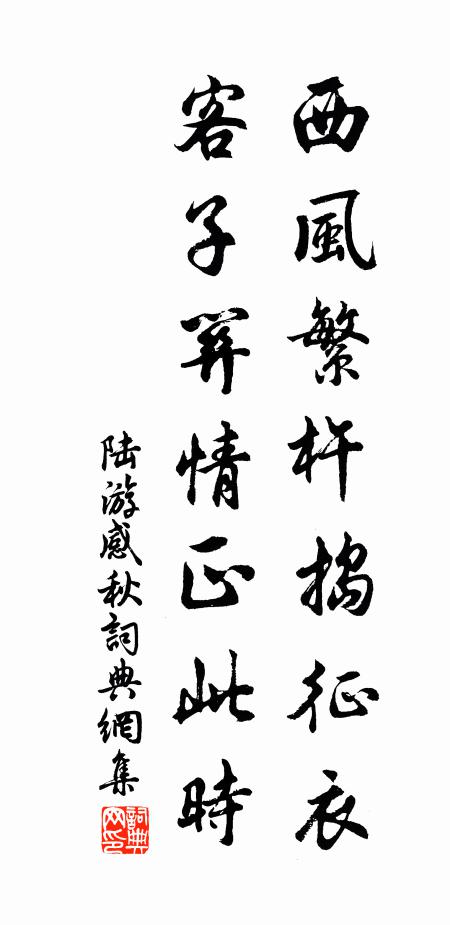 西風繁杵搗征衣
客子關情正此時
陸游感秋詞典網集
詞典网印